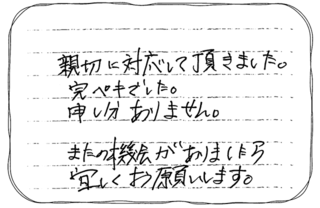 親切に対応して頂きました。
完ペキでした。
申し分ありません。
またの機会がありましたら
宜しくお願いします。